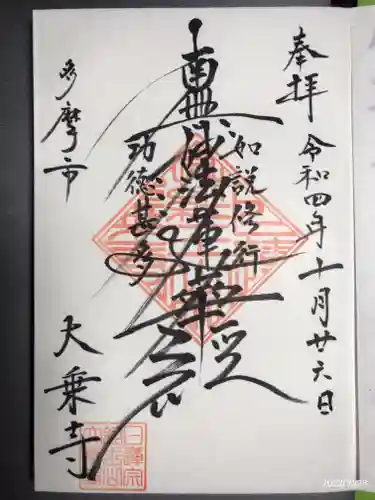 奉拝
令和四年十月廿六日
如説修行
南無妙法蓮華経
功徳甚多
多摩市
大乗寺